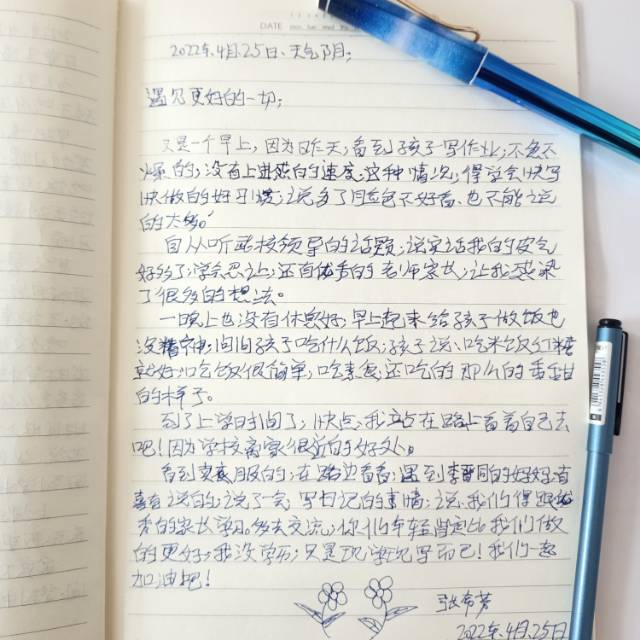 DATE
2022年4月25日、天气阴;
遇见更好的一切;
又是一个早上,因为昨天,看到孩子写作业,不急不
燥的,没有上进感的速度,这种情况,得学会快写
快做的好习惯;说多了脸色不好看、也不能说
的太多。
自从听学校领导的话题,说实话我的脾气
好多了;学会忍让,还有优秀的老师家长,让我感染
了很多的想法。
一晚上也没有休息好,早上起来给孩子做饭也
没精神,问问孩子吃什么饭,孩子说、吃米饭们
就好,吃饭很简单,吃素食,还吃的那么的香甜
的样子。
到了上学时间了,快点,我站在路上看着自己去
吧!因为学校离家很近的好处。
看到卖衣服的,在路边看看,遇到李同的妈妈,有
说的,说了会,写日记的事情,说、我们得跟优
秀的家长学习。多去交流,你们年轻肯定比我们做
的更好,我没学历,只是现学现写而已!我们一起
加油吧!
张芳
2022年4月25日